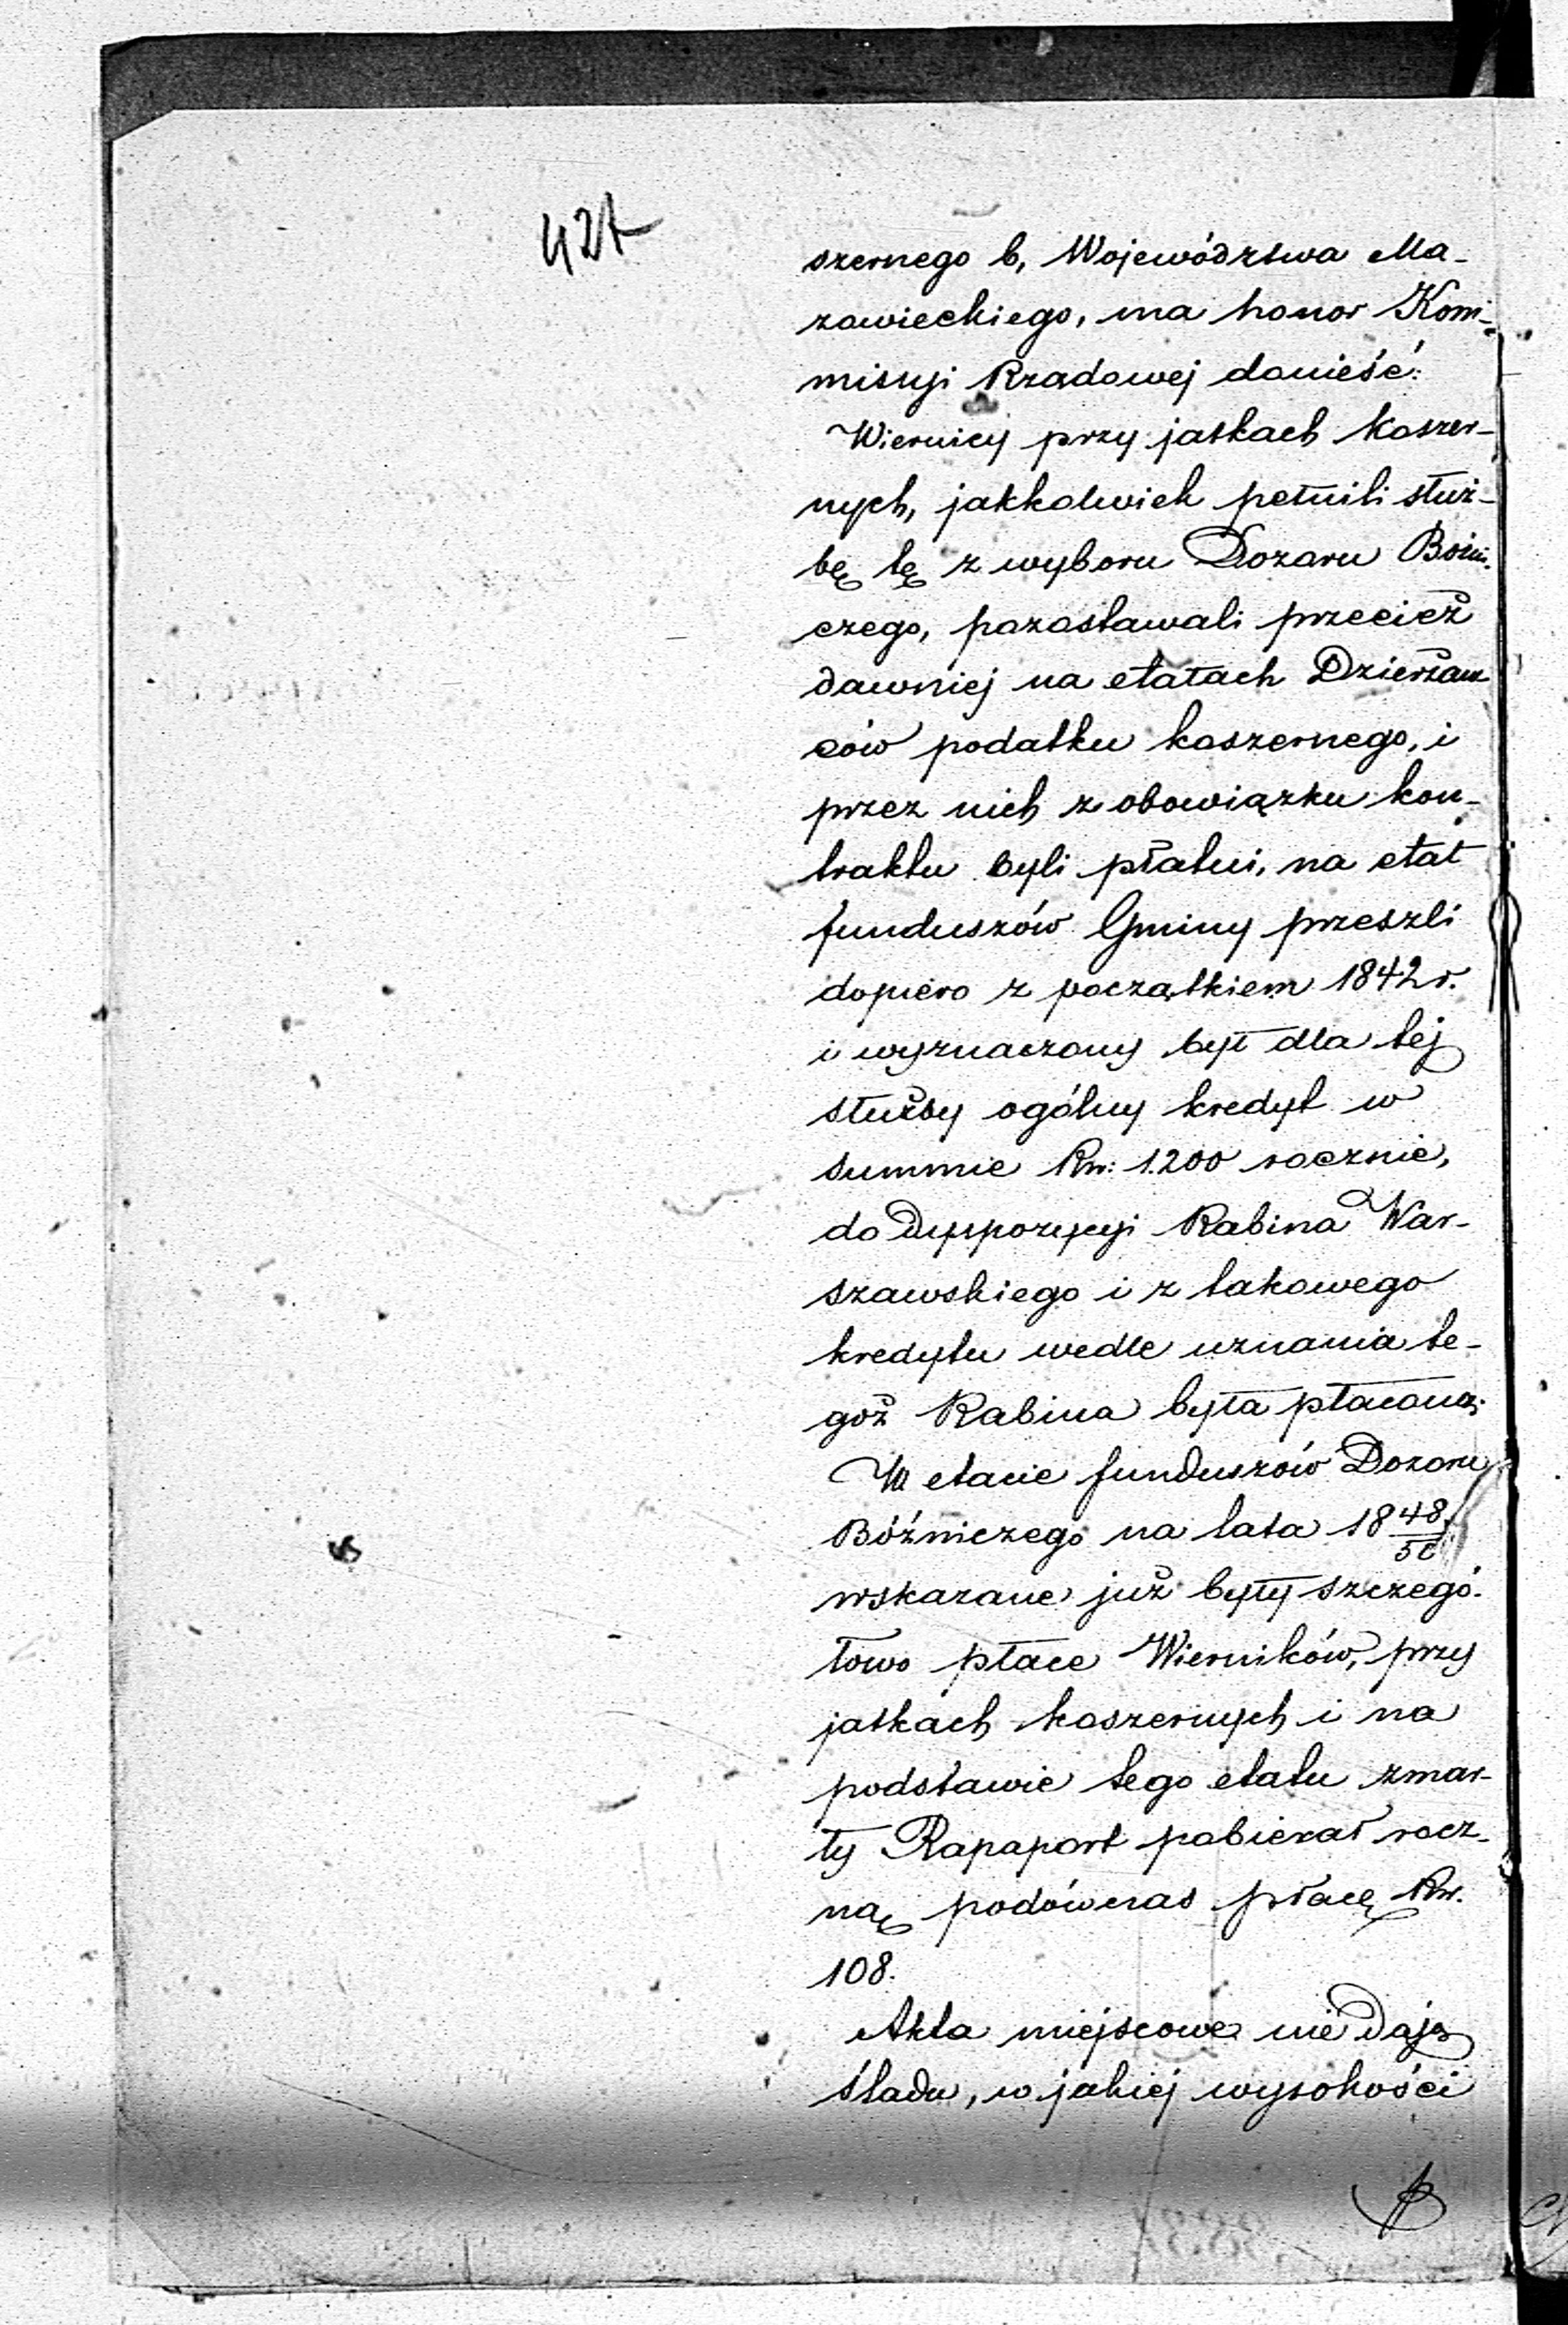 427
szernego b, Województwa Ma-
zowieckiego, ma honor Kom-
missyi Rządowej donieść:
Wiernicy przy jatkach koszer-
nych, jakkolwiek pełnili służ-
bę tę z wyboru Dozoru Bóżni-
czego, pozostawali przecież
dawniej na etatach Dzierżaw
ców podatku koszernego, i
przez nich z obowiązku kon-
traktu byli płatni, na etat
funduszów Gminy przeszli
dopiero z początkiem 1842 r.
i wyznaczony był dla tej
służby ogólny kredyt w
summie Rsr: 1.200 rocznie,
do dyspozycyi Rabina War-
szawskiego i z takowego
kredytu wedle uznania te-
goż Rabina była płaconą;
W etacie funduszów Dozoru
Bóźniczego na lata 1848/50
wskazane już były szczegó-
łowo płace Wierników, przy
jatkach koszernych i na
podstawie tego etatu zmar-
ły Rapaport pobierał rocz-
ną podówczas płacę Rsr.
108.
Akta miejscowe nie dają
śladu, w jakiej wysokości